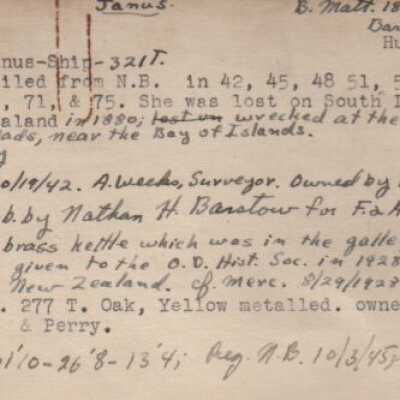 Janus.
B. Matt. 18
Bar
Hu
nus-Ship-321T.
iled from N.B. in 42, 45, 48 51, 5
, 71, & 75. She was lost on South I
aland in 1880; lost on wrecked at the
eads, near the Bay of Islands.
y
0/19/42. A. Weeks, Surveyor. Owned by
b. by Nathan H. Barstow for F. & A
brass kettle which was in the galle
given to the O. D. Hist. Soc. in 1928
New Zealand. cf. Merc. 8/29/1928
. 277 T. Oak, Yellow metalled. owne
& Perry.
01'10-26'8-13'4; Reg. N.B. 10/3/45;